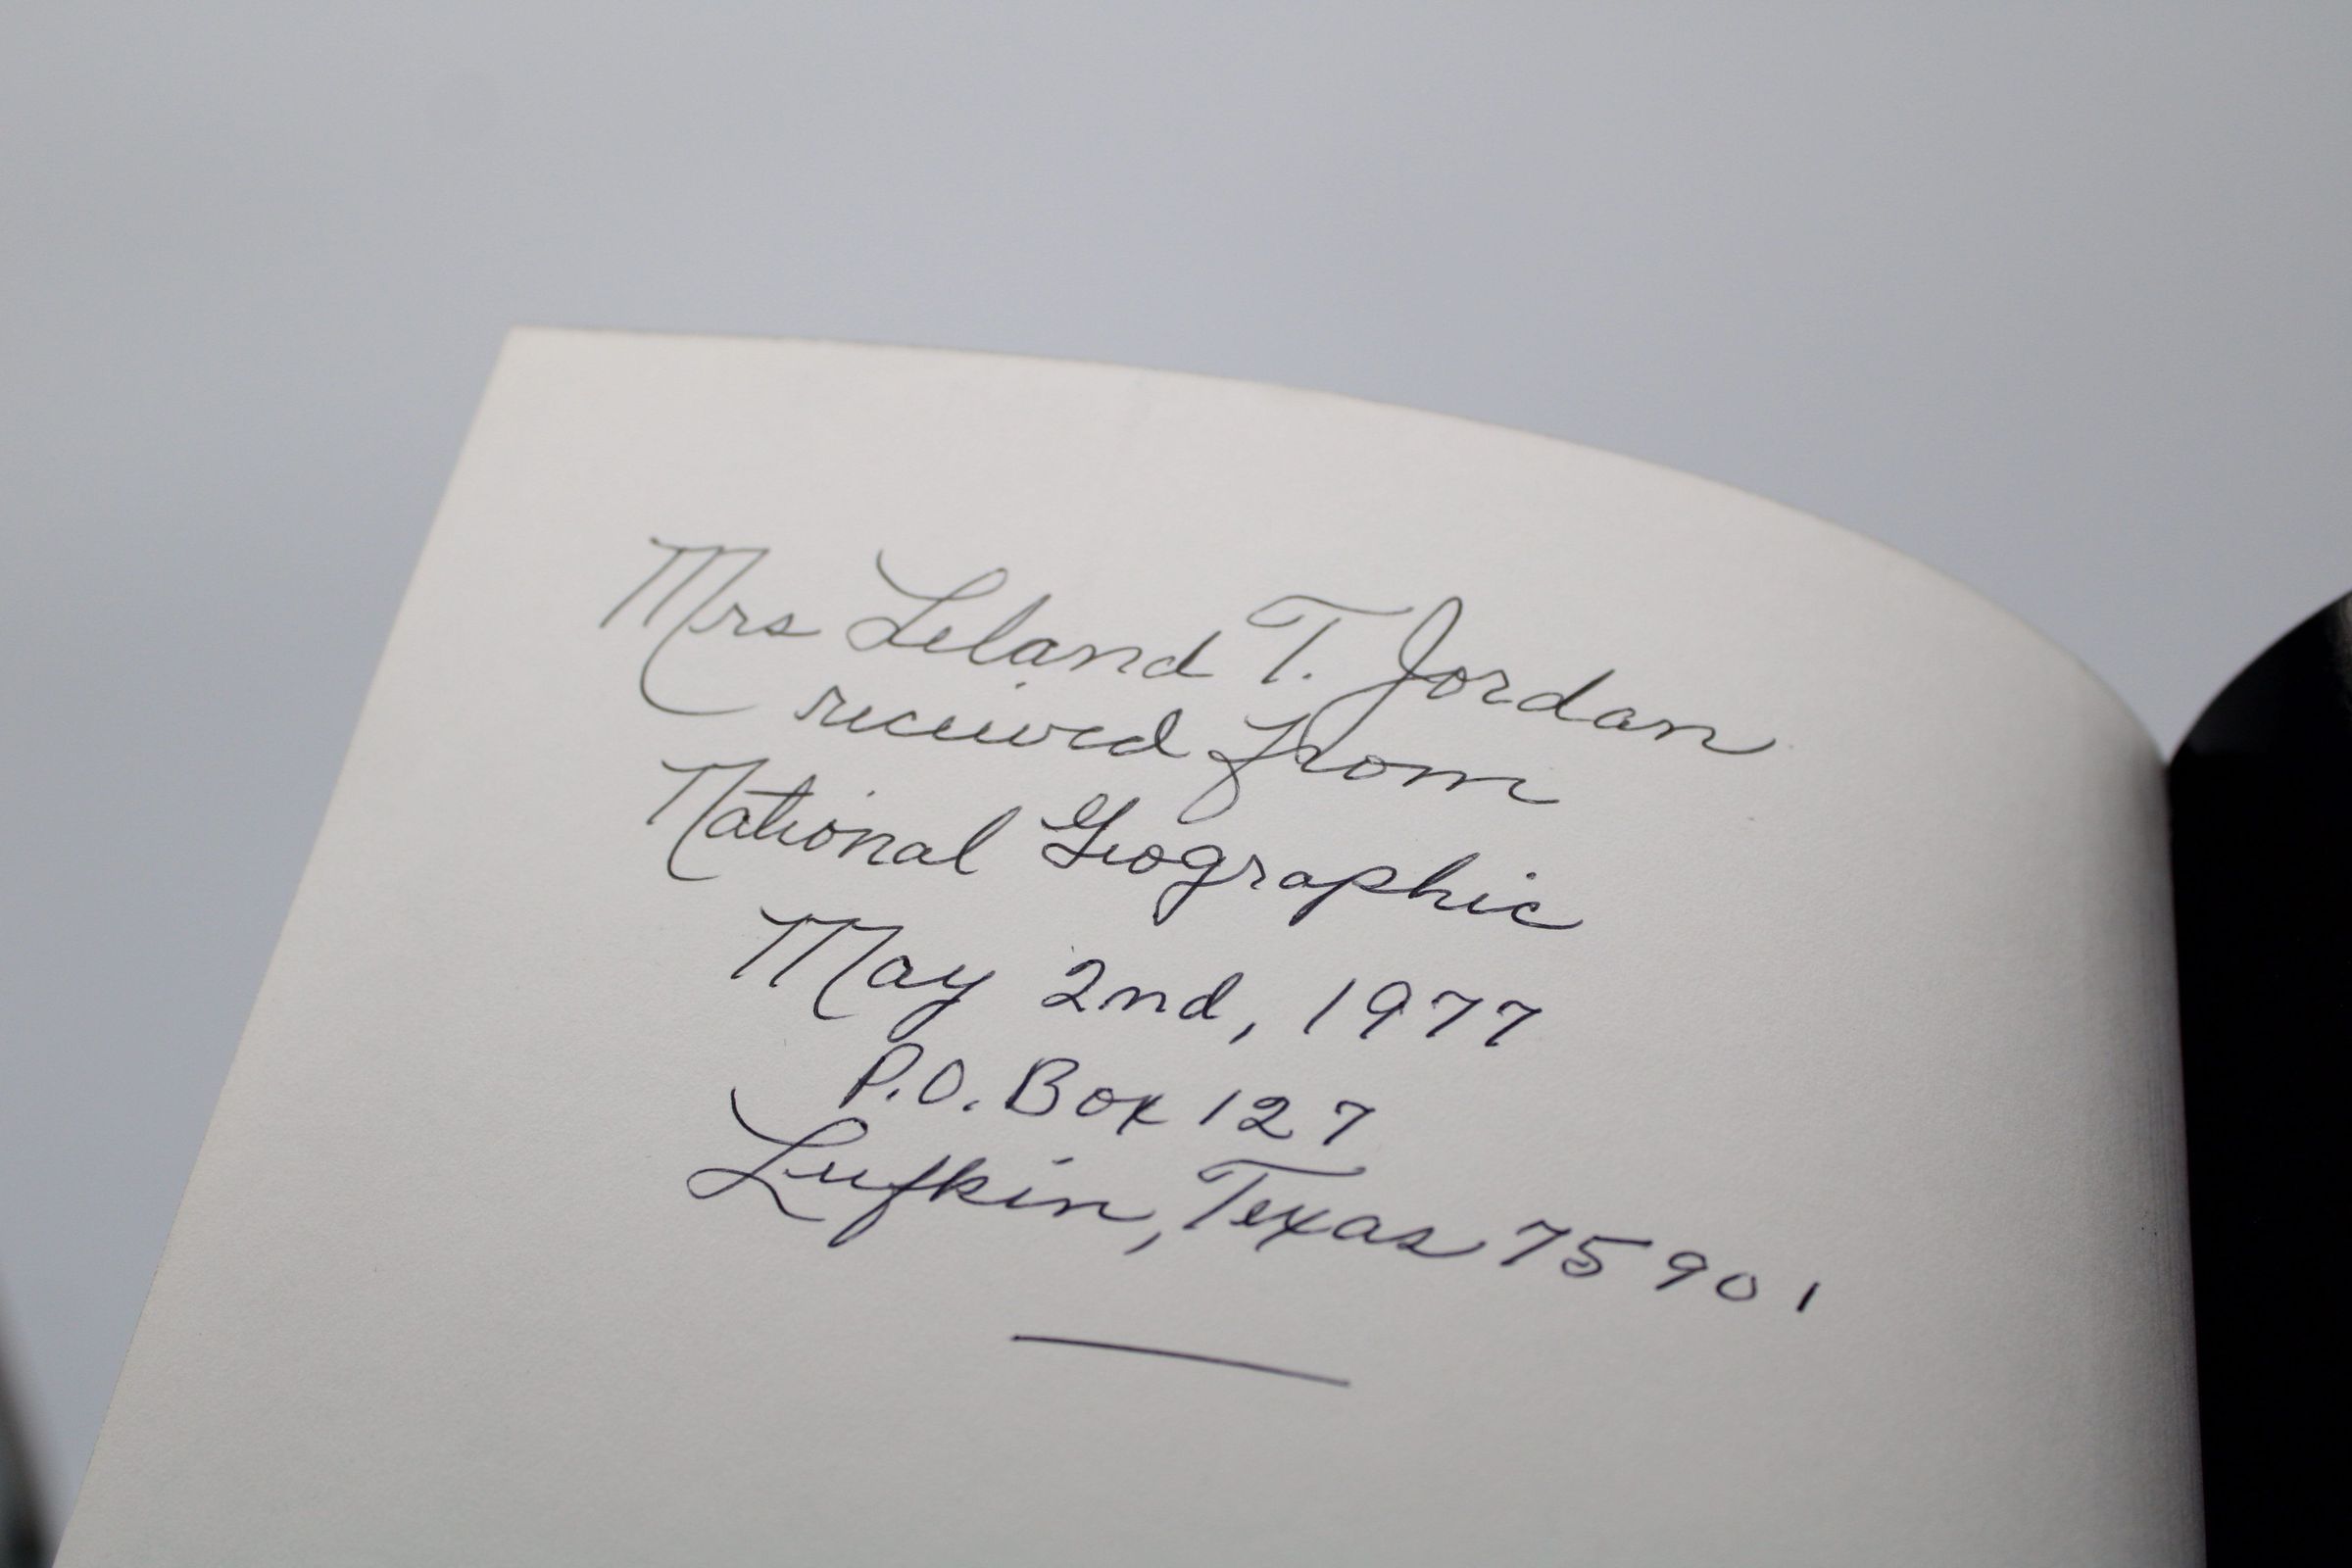 Mrs Leland T. Jordan
received from
National Geographic
May 2nd, 1977
P.O. Box 127
Lufkin, Texas 75901